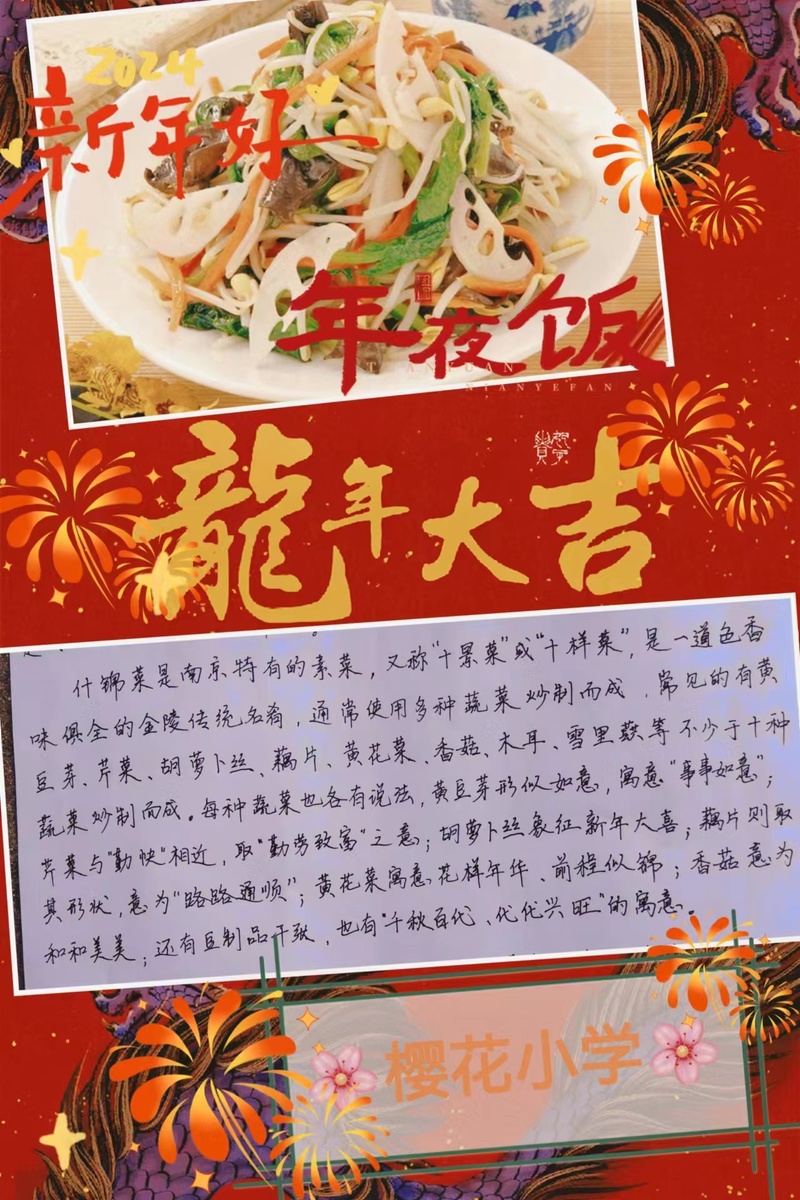 2024
新年好
年夜饭
NIANYEFAN
龍年大吉
什锦菜是南京特有的素菜，又称“十景菜”或“十样菜”，是一道色香
味俱全的金陵传统名肴，通常使用多种蔬菜炒制而成，常见的有黄
豆芽、芹菜、胡萝卜丝、藕片、黄花菜、香菇、木耳、雪里蕻等不少于十种
蔬菜炒制而成。每种蔬菜也各有说法，黄豆芽形似如意，寓意“事事如意”；
芹菜与“勤快”相近，取“勤劳致富”之意；胡萝卜丝象征新年大喜；藕片则取
其形状，意为“路路通顺”；黄花菜寓意花样年华、前程似锦；香菇意为
和和美美；还有豆制品干张，也有“千秋百代、代代兴旺”的寓意。
樱花小学